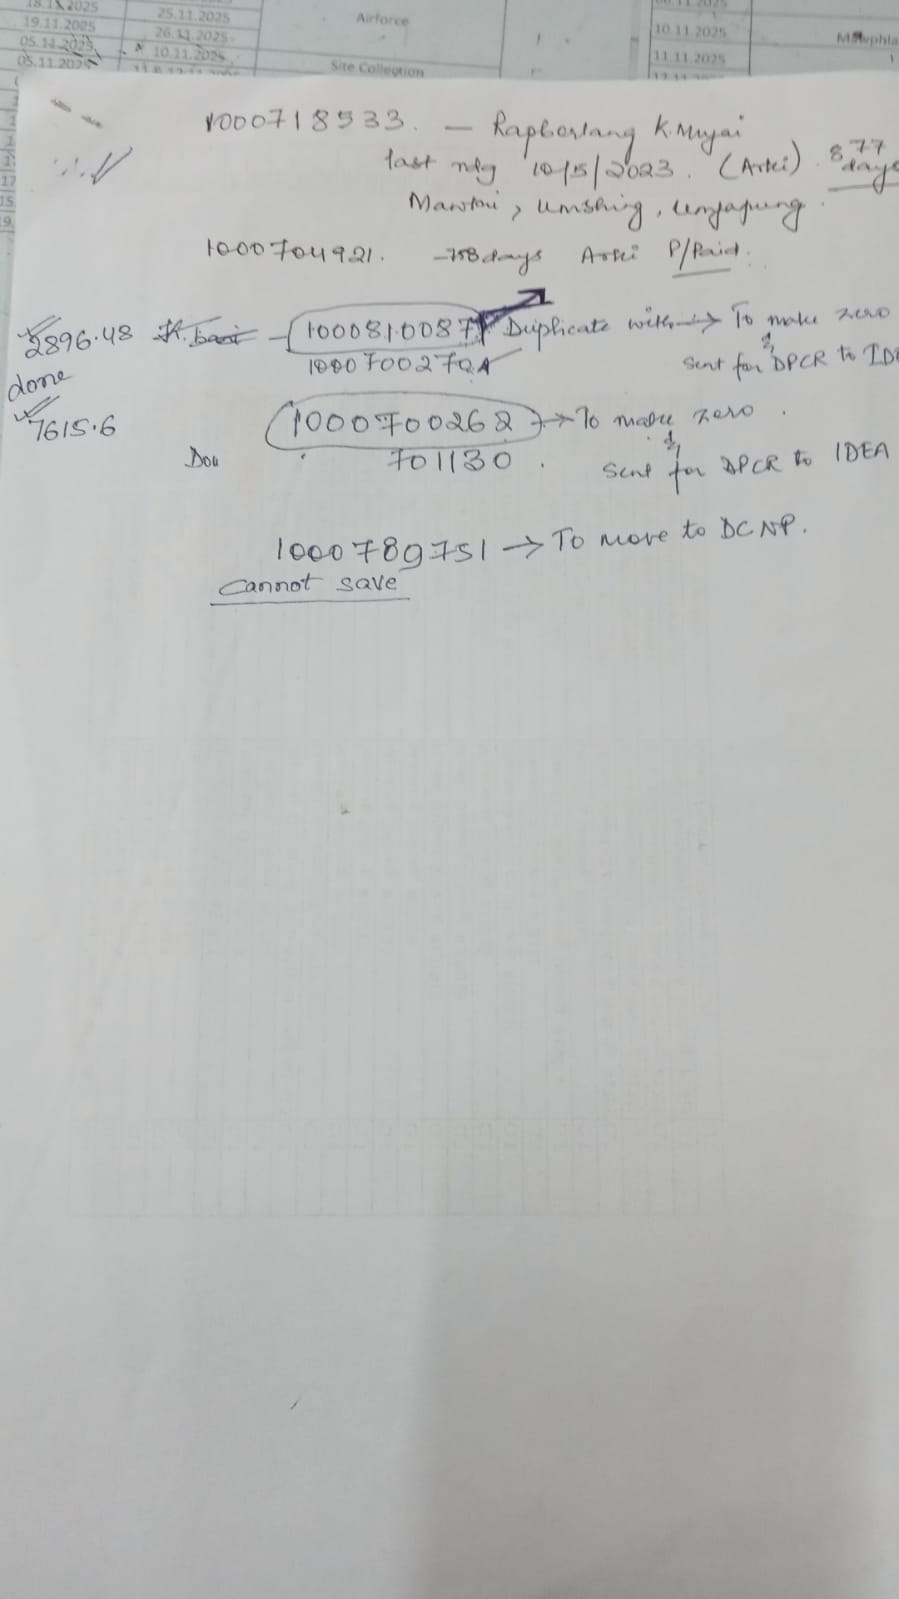 18.11.2025
19.11.2005
05.11.2025
05.11.2025
25.11.2025
26.11.2025
10.11.2025
Airforce
Site Collection
10.11.2025
11.11.2025
1000718533. — K. Mujai
last rdg 10/5/2023. (Arki). 877 days
Mawtni, Umshing,
1000704921. -758 days Arki P/Paid.
2896.48 1000810087 Duplicate with → To make zero
done 1000700270 & sent for DPCR to
7615.6 1000700262 → To make zero.
Dou 701130. & sent for DPCR to IDEA
1000789751 → To move to DCNP.
Cannot save